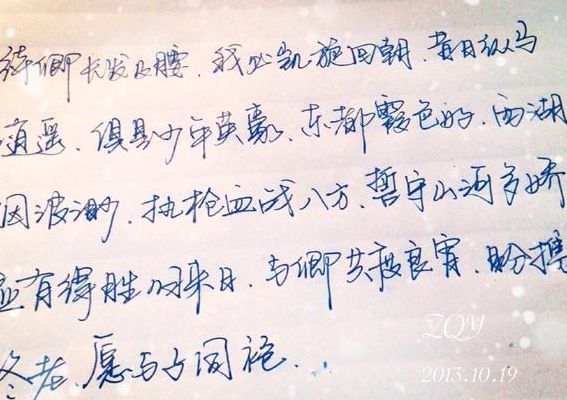 待卿长发及腰，我必凯旋回朝。昔日纵马
逍遥，俱是少年英豪。东都霞色好，西湖
烟波渺。执枪血战八方，誓守山河多娇
应有得胜归来日，与卿共度良宵。盼携
终老，愿与子同袍...
ZQY
2013.10.19